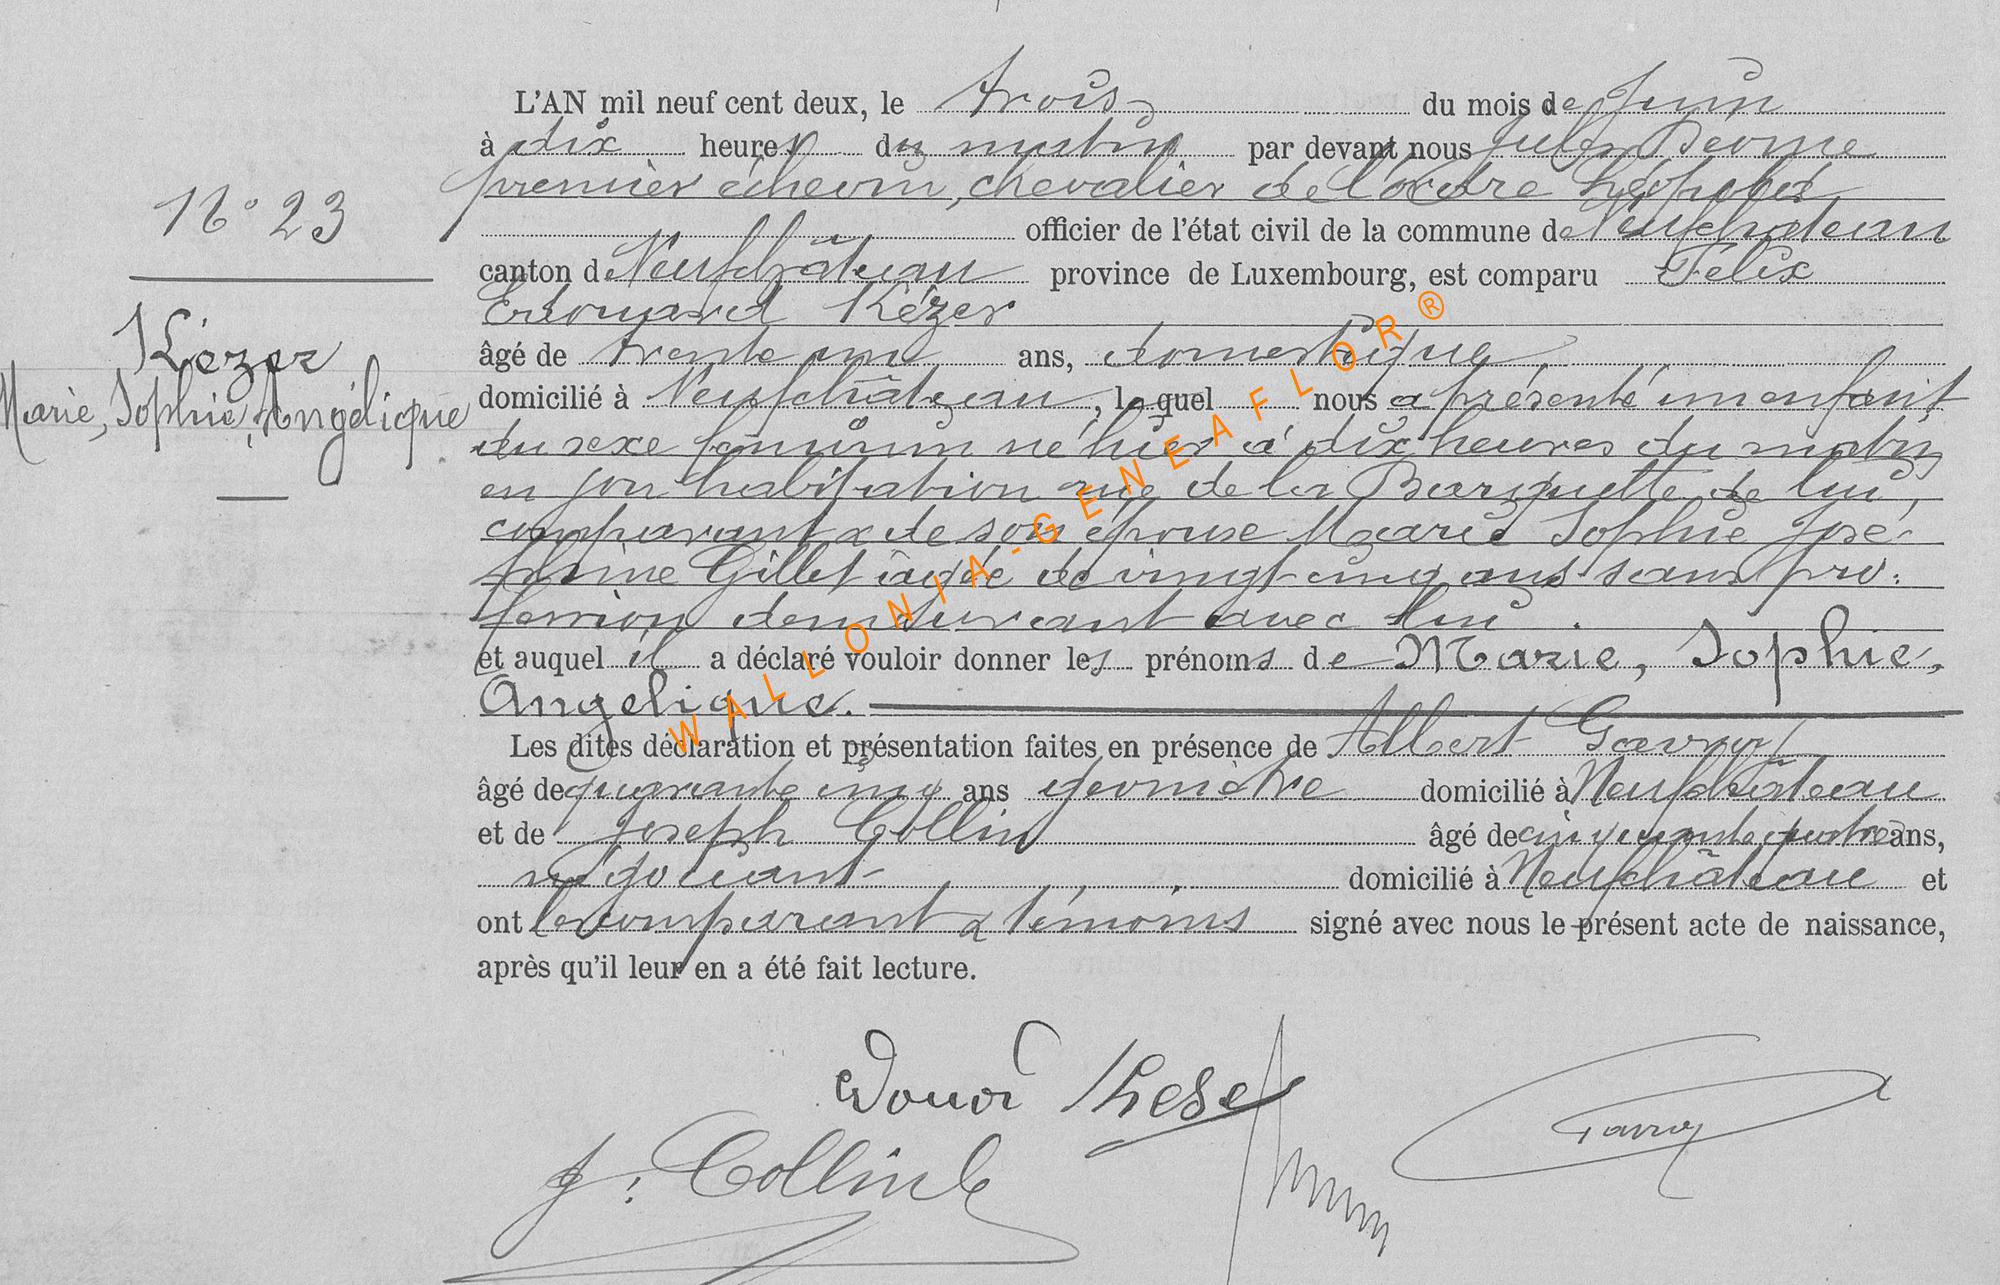 L'AN mil neuf cent deux, le trois du mois de Juin
à dix heures du matin par devant nous Jules
premier échevin, chevalier de l'ordre Léopold
officier de l'état civil de la commune de Neufchâteau
canton de Neufchâteau province de Luxembourg, est comparu Félix
Edouard Kézer
âgé de trente un ans, domestique
domicilié à Neufchâteau, lequel nous a présenté un enfant
du sexe féminin né hier à dix heures du matin
en son habitation rue de la Barquette de lui,
comparant & de son épouse Marie Sophie José-
phine Gillet âgée de vingt-cinq ans sans pro-
fession demeurant avec lui.
et auquel il a déclaré vouloir donner les prénoms de Marie, Sophie,
Angélique.
Les dites déclaration et présentation faites en présence de Albert Gavroy
âgé de quarante cinq ans géomètre domicilié à Neufchâteau
et de Joseph Collin âgé de cinquante quatre ans,
négociant domicilié à Neufchâteau et
ont les comparant & témoins signé avec nous le présent acte de naissance,
après qu'il leur en a été fait lecture.
N° 23
Kézer
Marie, Sophie, Angélique
J. Collin
Gavroy
WALLONIA-GENEAFLOR®